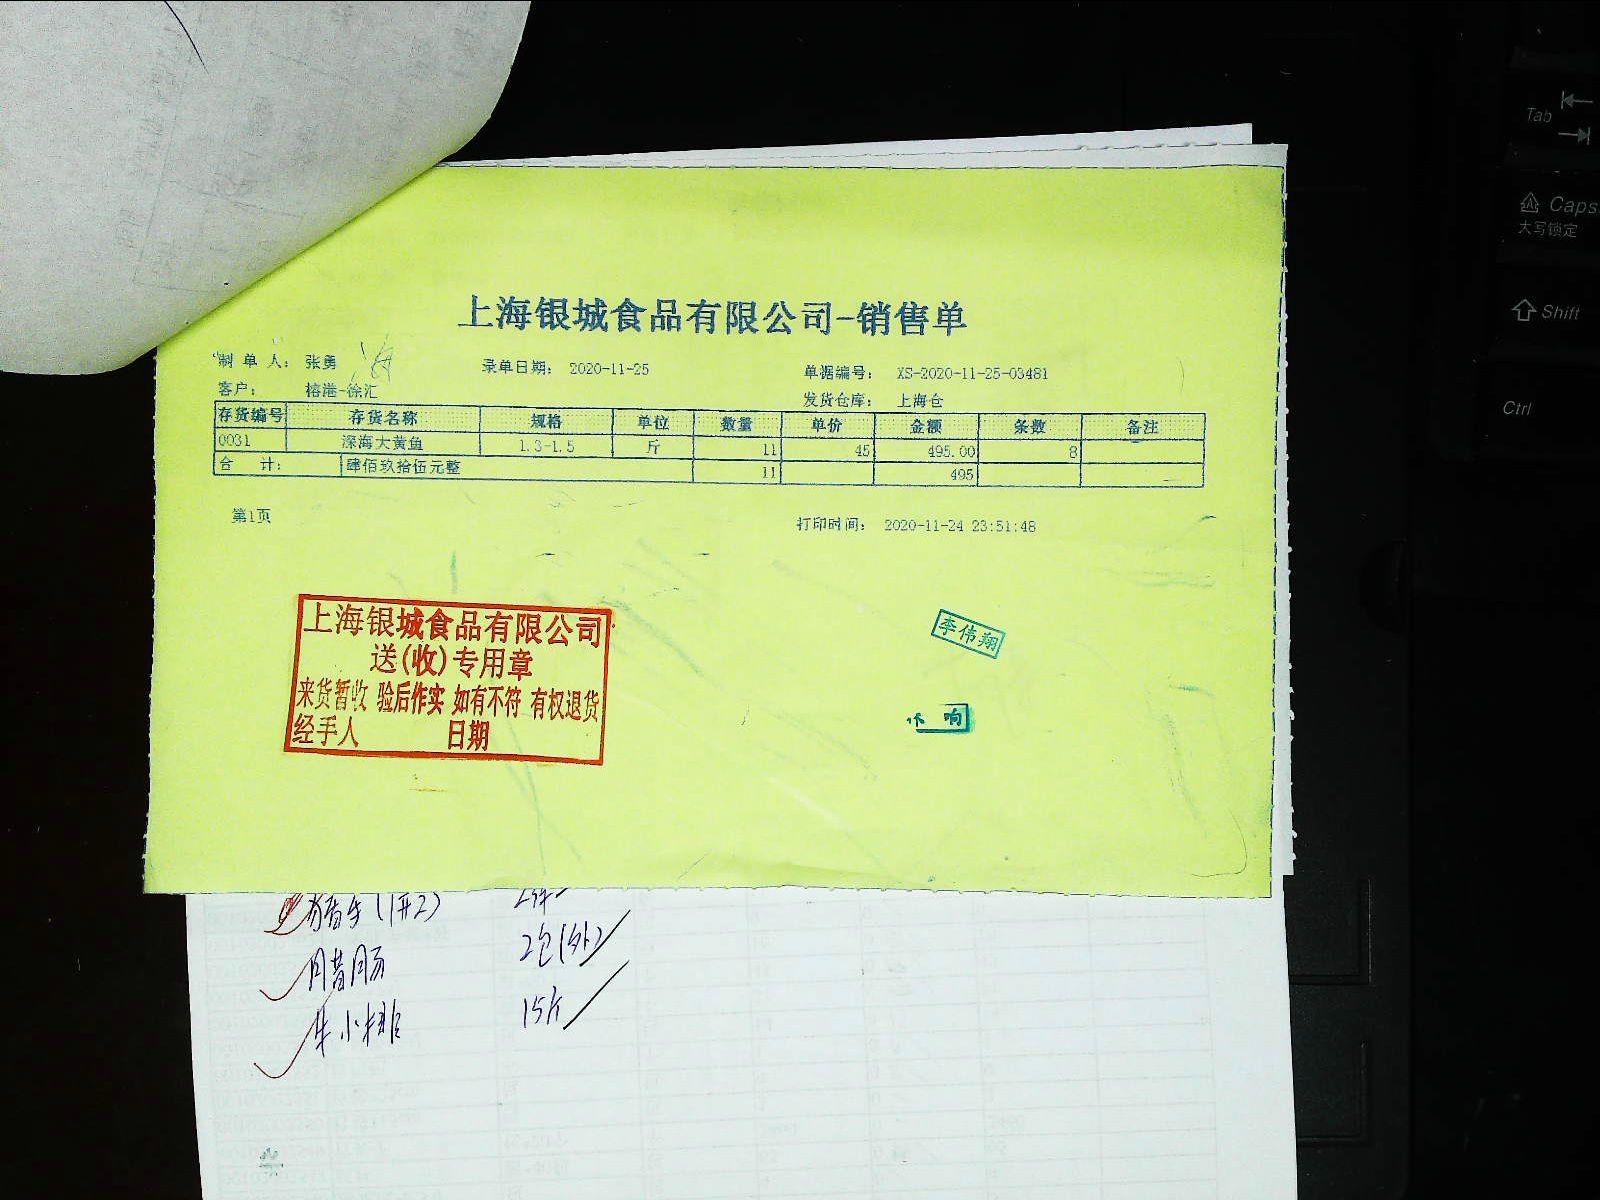 上海银城食品有限公司-销售单
制 单 人: 张勇 录单日期: 2020-11-25 单据编号: XS-2020-11-25-03481
客户: 榕港-徐汇 发货仓库: 上海仓
存货编号 存货名称 规格 单位 数量 单价 金额 条数 备注
0031 深海大黄鱼 1.3-1.5 斤 11 45 495.00 8
合 计: 肆佰玖拾伍元整 11 495
第1页 打印时间: 2020-11-24 23:51:48
上海银城食品有限公司
送(收)专用章
来货暂收 验后作实 如有不符 有权退货
经手人 日期
李伟翔
响
(1开2)
腊肠 2包(外)
牛小排 15斤
Tab
Caps
大写锁定
Shift
Ctrl